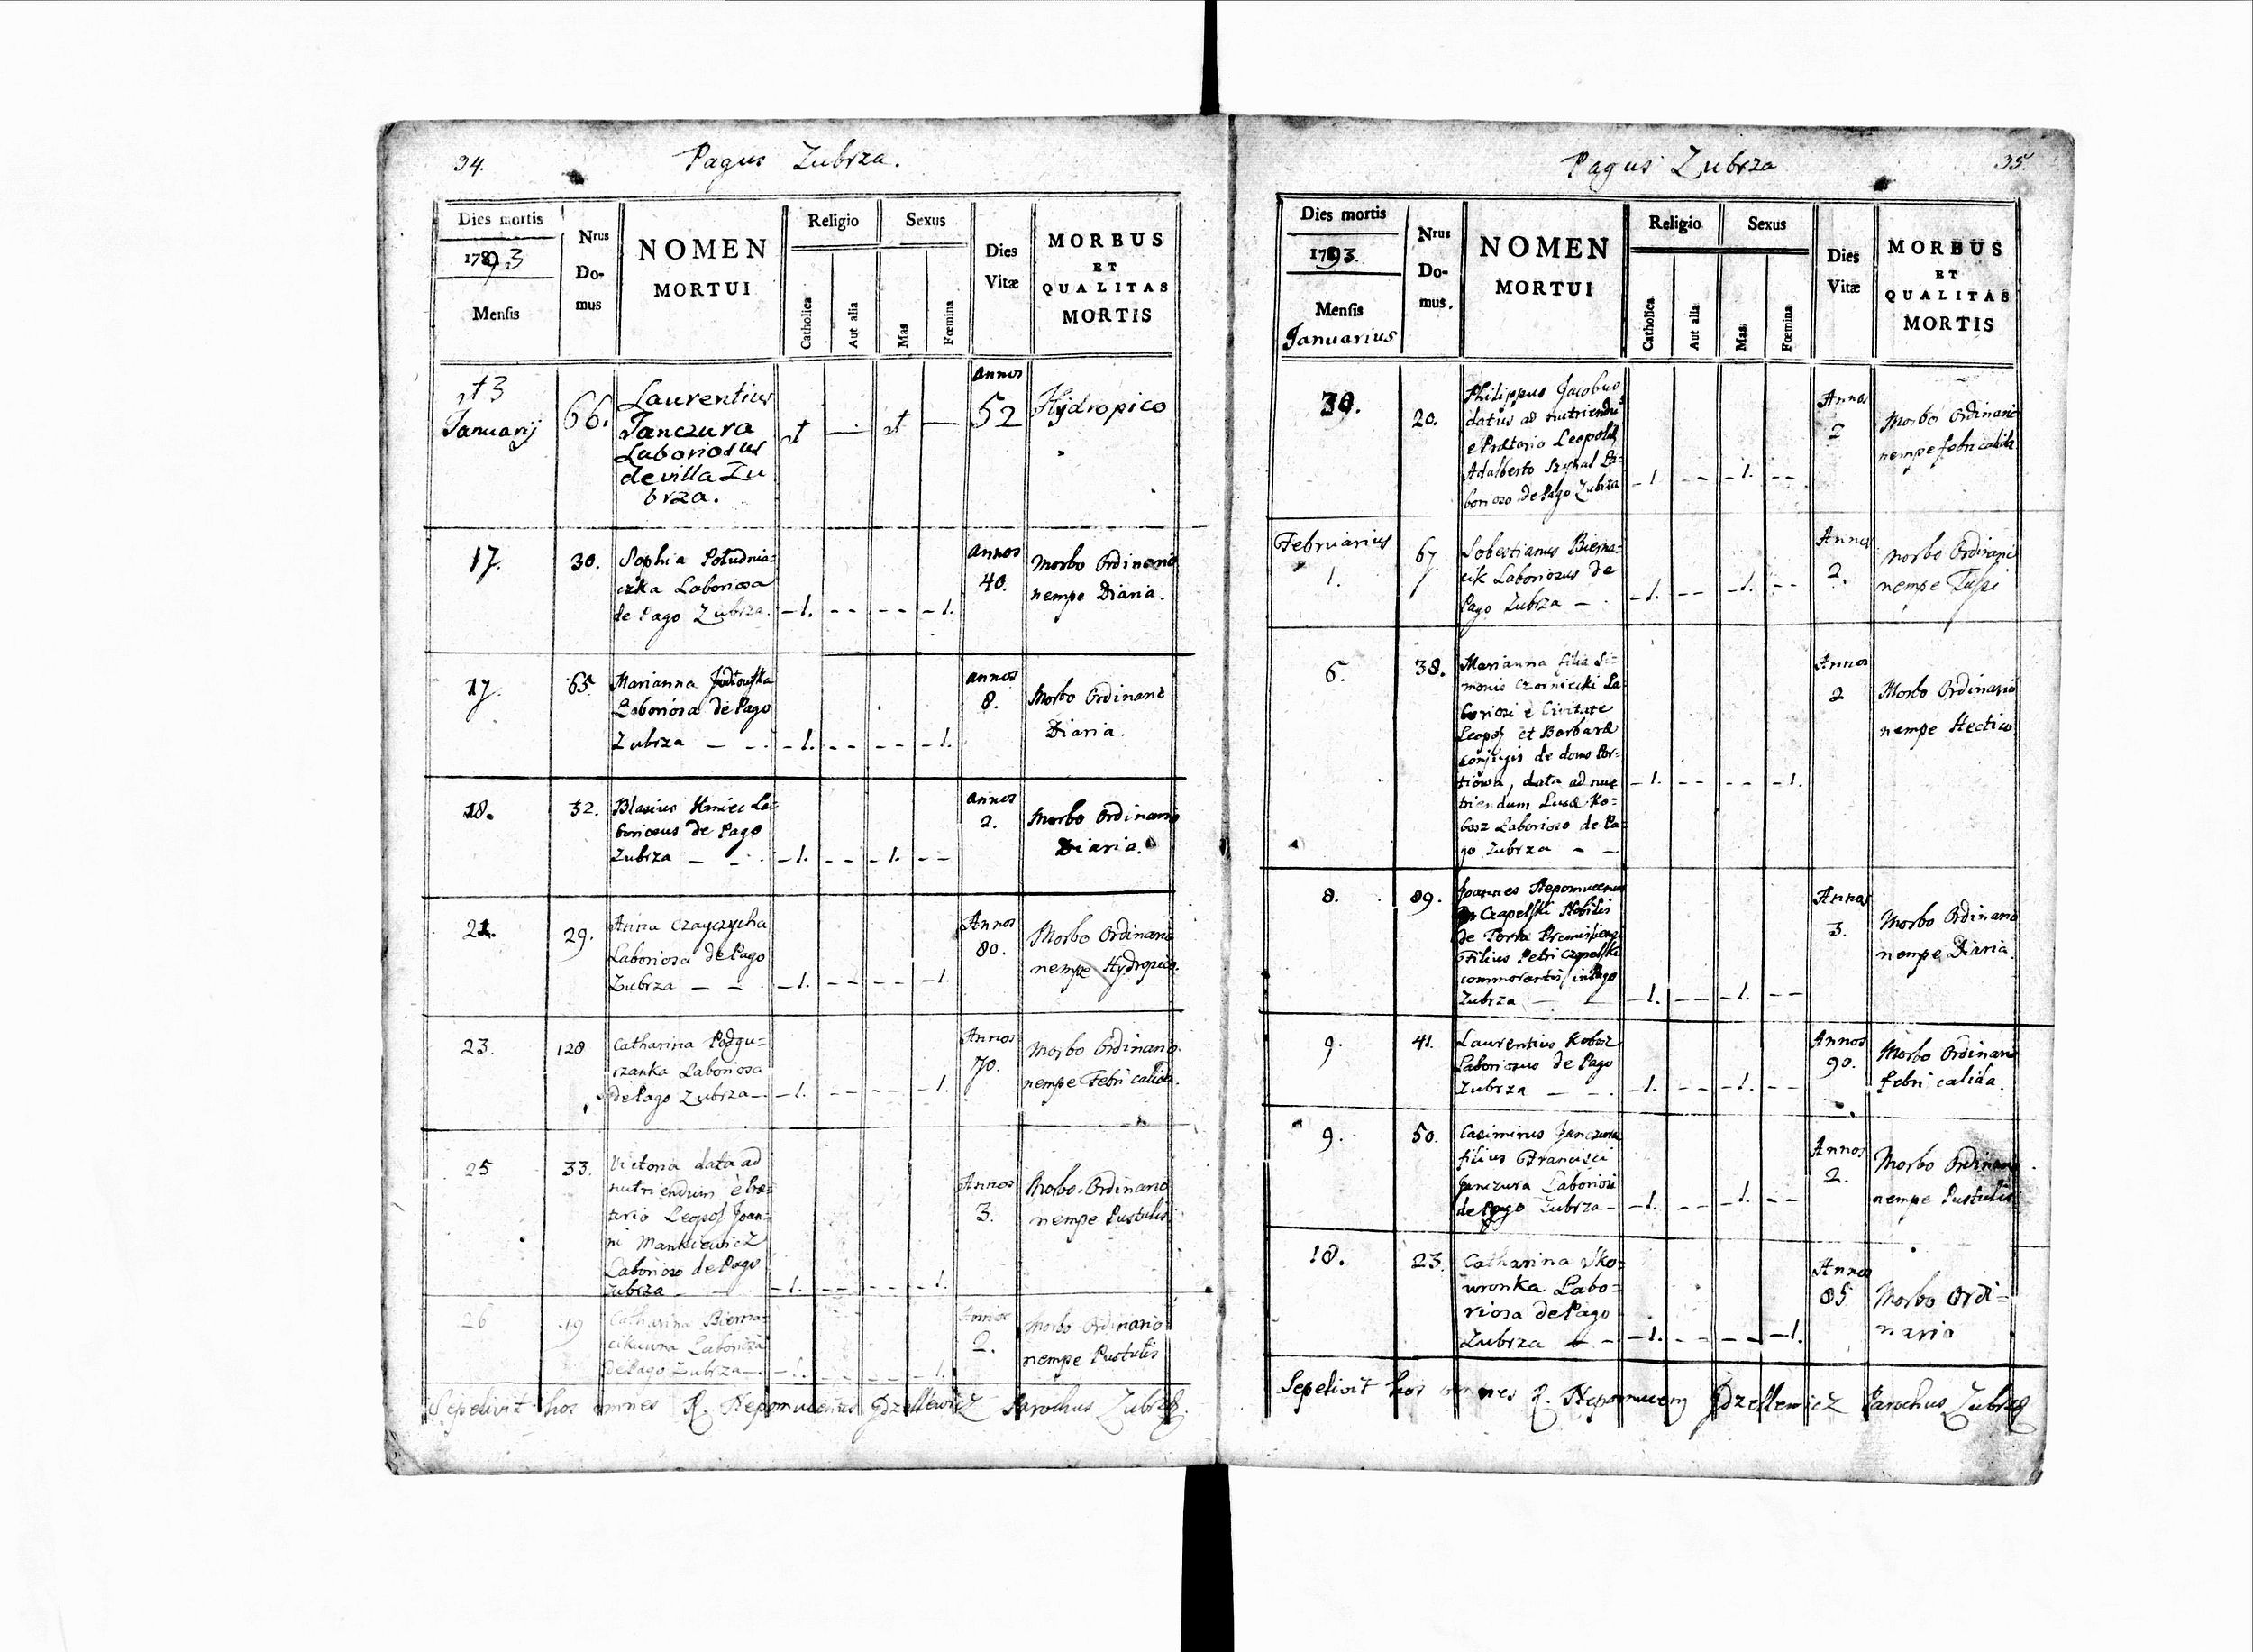 34.
Pagus Zubrza.
Dies mortis
1793
Mensis
Nrus
Do-
mus
NOMEN
MORTUI
Religio
Catholica
Aut alia
Sexus
Mas
Fœmina
Dies
Vitæ
MORBUS
ET
QUALITAS
MORTIS
13
Januarij
66.
Laurentius
Janczura
Laboriosus
de villa Zu
brza.
annos
52
Hydropico
17.
30.
Sophia Południa=
czka Laboriosa
de Pago Zubrza.
-1. -- -- -1.
annos
40.
Morbo Ordinario
nempe Diaria.
17.
65.
Marianna
Laboriosa de Pago
Zubrza — -.
-1. -- -- -1.
annos
8.
Morbo Ordinario
Diaria.
18.
32.
Blasius Kmiec La=
boriosus de Pago
Zubrza — -.
-1. -- -1. --
annos
2.
Morbo Ordinario
Diaria.
21.
29.
Anna Czayczycha
Laboriosa de Pago
Zubrza — —
-1. -- -- -1.
Annos
80.
Morbo Ordinario
nempe Hydropico.
23.
128
Catharina Podgu=
rzanka Laboriosa
de Pago Zubrza—.
-1. -- -- -1.
Annos
70.
Morbo Ordinario.
nempe Febri calida.
25
33.
Victoria data ad
nutriendum è Præ=
torio Leopol. Joan=
ni Mankiewicz
Laborioso de Pago
Zubrza
-1. -- -- -1.
Annos
3.
Morbo Ordinario
nempe Pustulis.
26
19
Catharina Bierna=
cikuwna Laboriosa
de Pago Zubrza—.
-1. -- -- -1.
Annos
2.
Morbo Ordinario
nempe Pustulis
Sepelivit hos omnes R. Nepomucenus Gdzellewicz Parochus Zubrzæ.
Pagus Zubrza
35.
Dies mortis
1793.
Mensis
Januarius
Nrus
Do-
mus.
NOMEN
MORTUI
Religio
Catholica
Aut alia
Sexus
Mas.
Fœmina
Dies
Vitæ
MORBUS
ET
QUALITAS
MORTIS
30.
20.
Philippus Jacobus
datus ad nutriendu
e Prætorio Leopold
Adalberto La=
borioso de Pago Zubrza
-1 -- -1. --
Annos
2
Morbo Ordinario
nempe febri calida
Februarius
1.
67
Sobestianus Bierna=
cik Laboriosus de
Pago Zubrza — .
-1. -- -1. --
Annos
2.
morbo Ordinario
nempe Tussi
6.
38.
Marianna filia Si=
monis Czarniecki La=
boriosi è Civitate
Leopol et Barbaræ
conjugis de domo Por=
, data ad nu
triendum Lucæ Ko=
bosz Laborioso de Pa=
go Zubrza - -.
-1. -- -- -1.
Annos
2
Morbo Ordinario
nempe Hectico
8.
89.
Joannes Nepomucenus
Czapelski Nobilis
de Terra
Filius Petri Czapelski
commorantis in Pago
Zubrza — —
-1. -- -1. --
Annos
3.
Morbo Ordinario
nempe Diaria.
9.
41.
Laurentius Kobosz
Laboriosus de Pago
Zubrza — -.
-1. -- -1. --
Annos
90.
Morbo Ordinario
febri calida.
9.
50.
Casimirus Janczura
filius Francisci
Janczura Laboriosi
de Pago Zubrza-
-1. -- -1. --
Annos
2.
Morbo Ordinario.
nempe Pustulis
18.
23.
Catharina Sko=
wronka Labo=
riosa de Pago
Zubrza - -
-1. -- -- -1.
Annos
85
Morbo Ordi=
nario
Sepelivit hos omnes R. Nepomucenus Gdzellewicz Parochus Zubrzæ